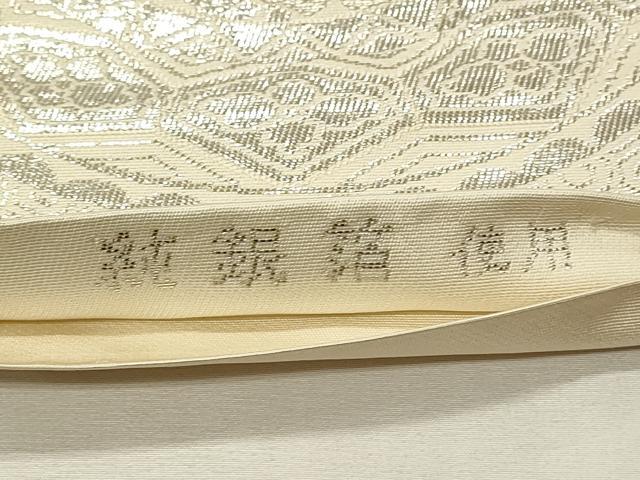 純銀箔 使用